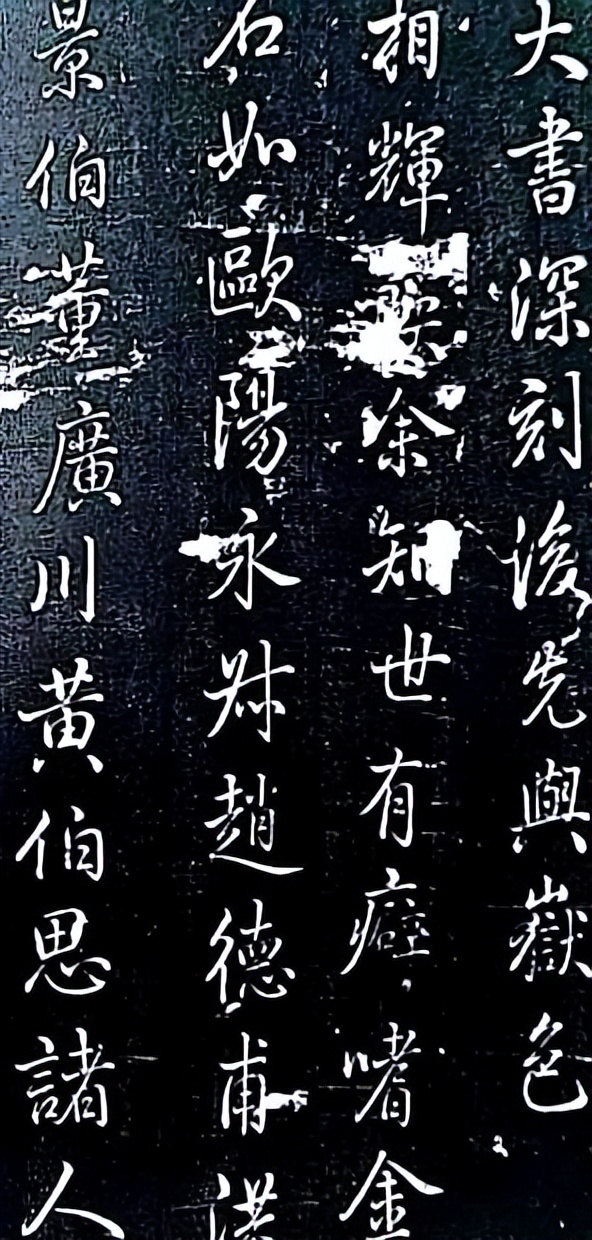 大書深刻後先與嶽色
相輝余知世有癖嗜金
石如歐陽永叔趙德甫洪
景伯董廣川黃伯思諸人